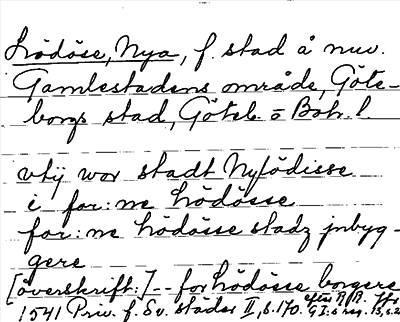 Lödöse, Nya, f. stad å nuv.
Gamlestadens område, Göte-
borgs stad, Göteb. o Boh. l.
vtij wor stadt Nylödisse
i for:ne Lödösse
for:ne Lödösse stadz jnbyg-
gere
[överskrift:] -- for Lödösse borgere
1541 Priv. f. Sv. städer II, s. 170. efter R/A.
G.I:s reg. 13, s. 2